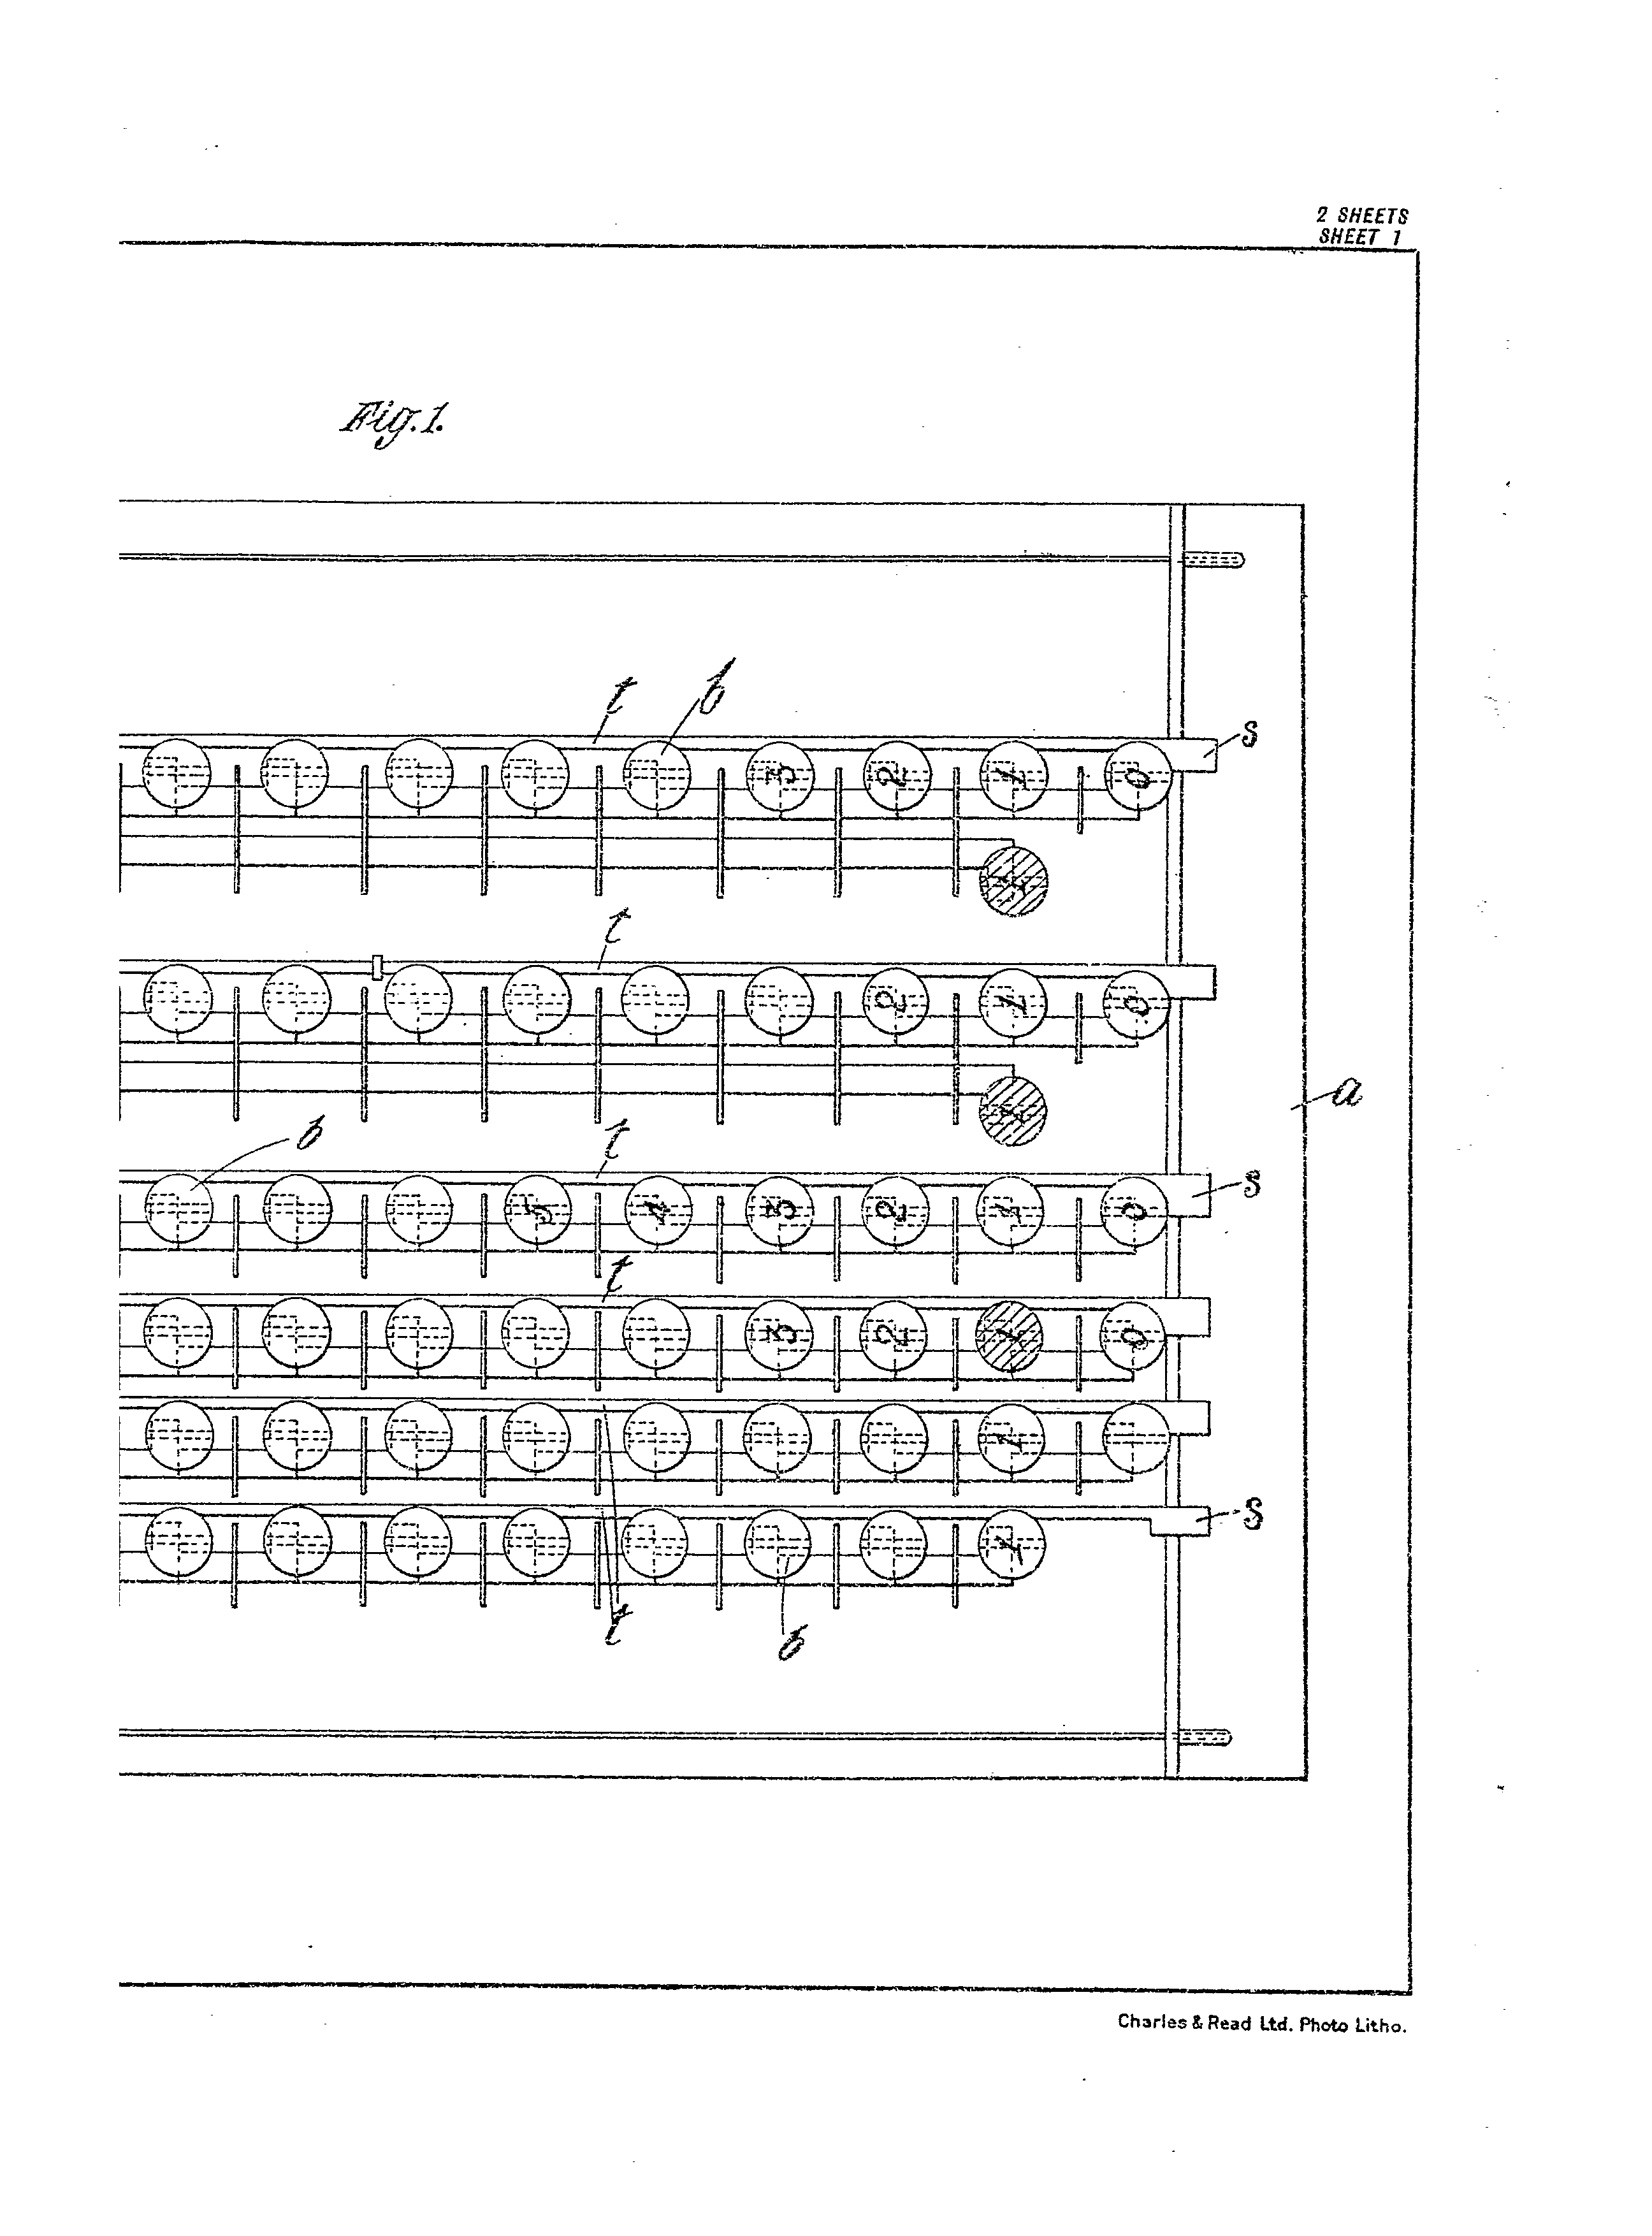 2 SHEETS
SHEET 1
Fig. 1.
t b
s
3 2 1 0
1
t
2 1 0
1
a
b t
s
5 4 3 2 1 0
t
3 2 1 0
1
s
1
t b
Charles & Read Ltd. Photo Litho.